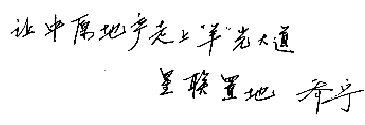 让中原地产走上"羊"光大道
星联置地 春宁